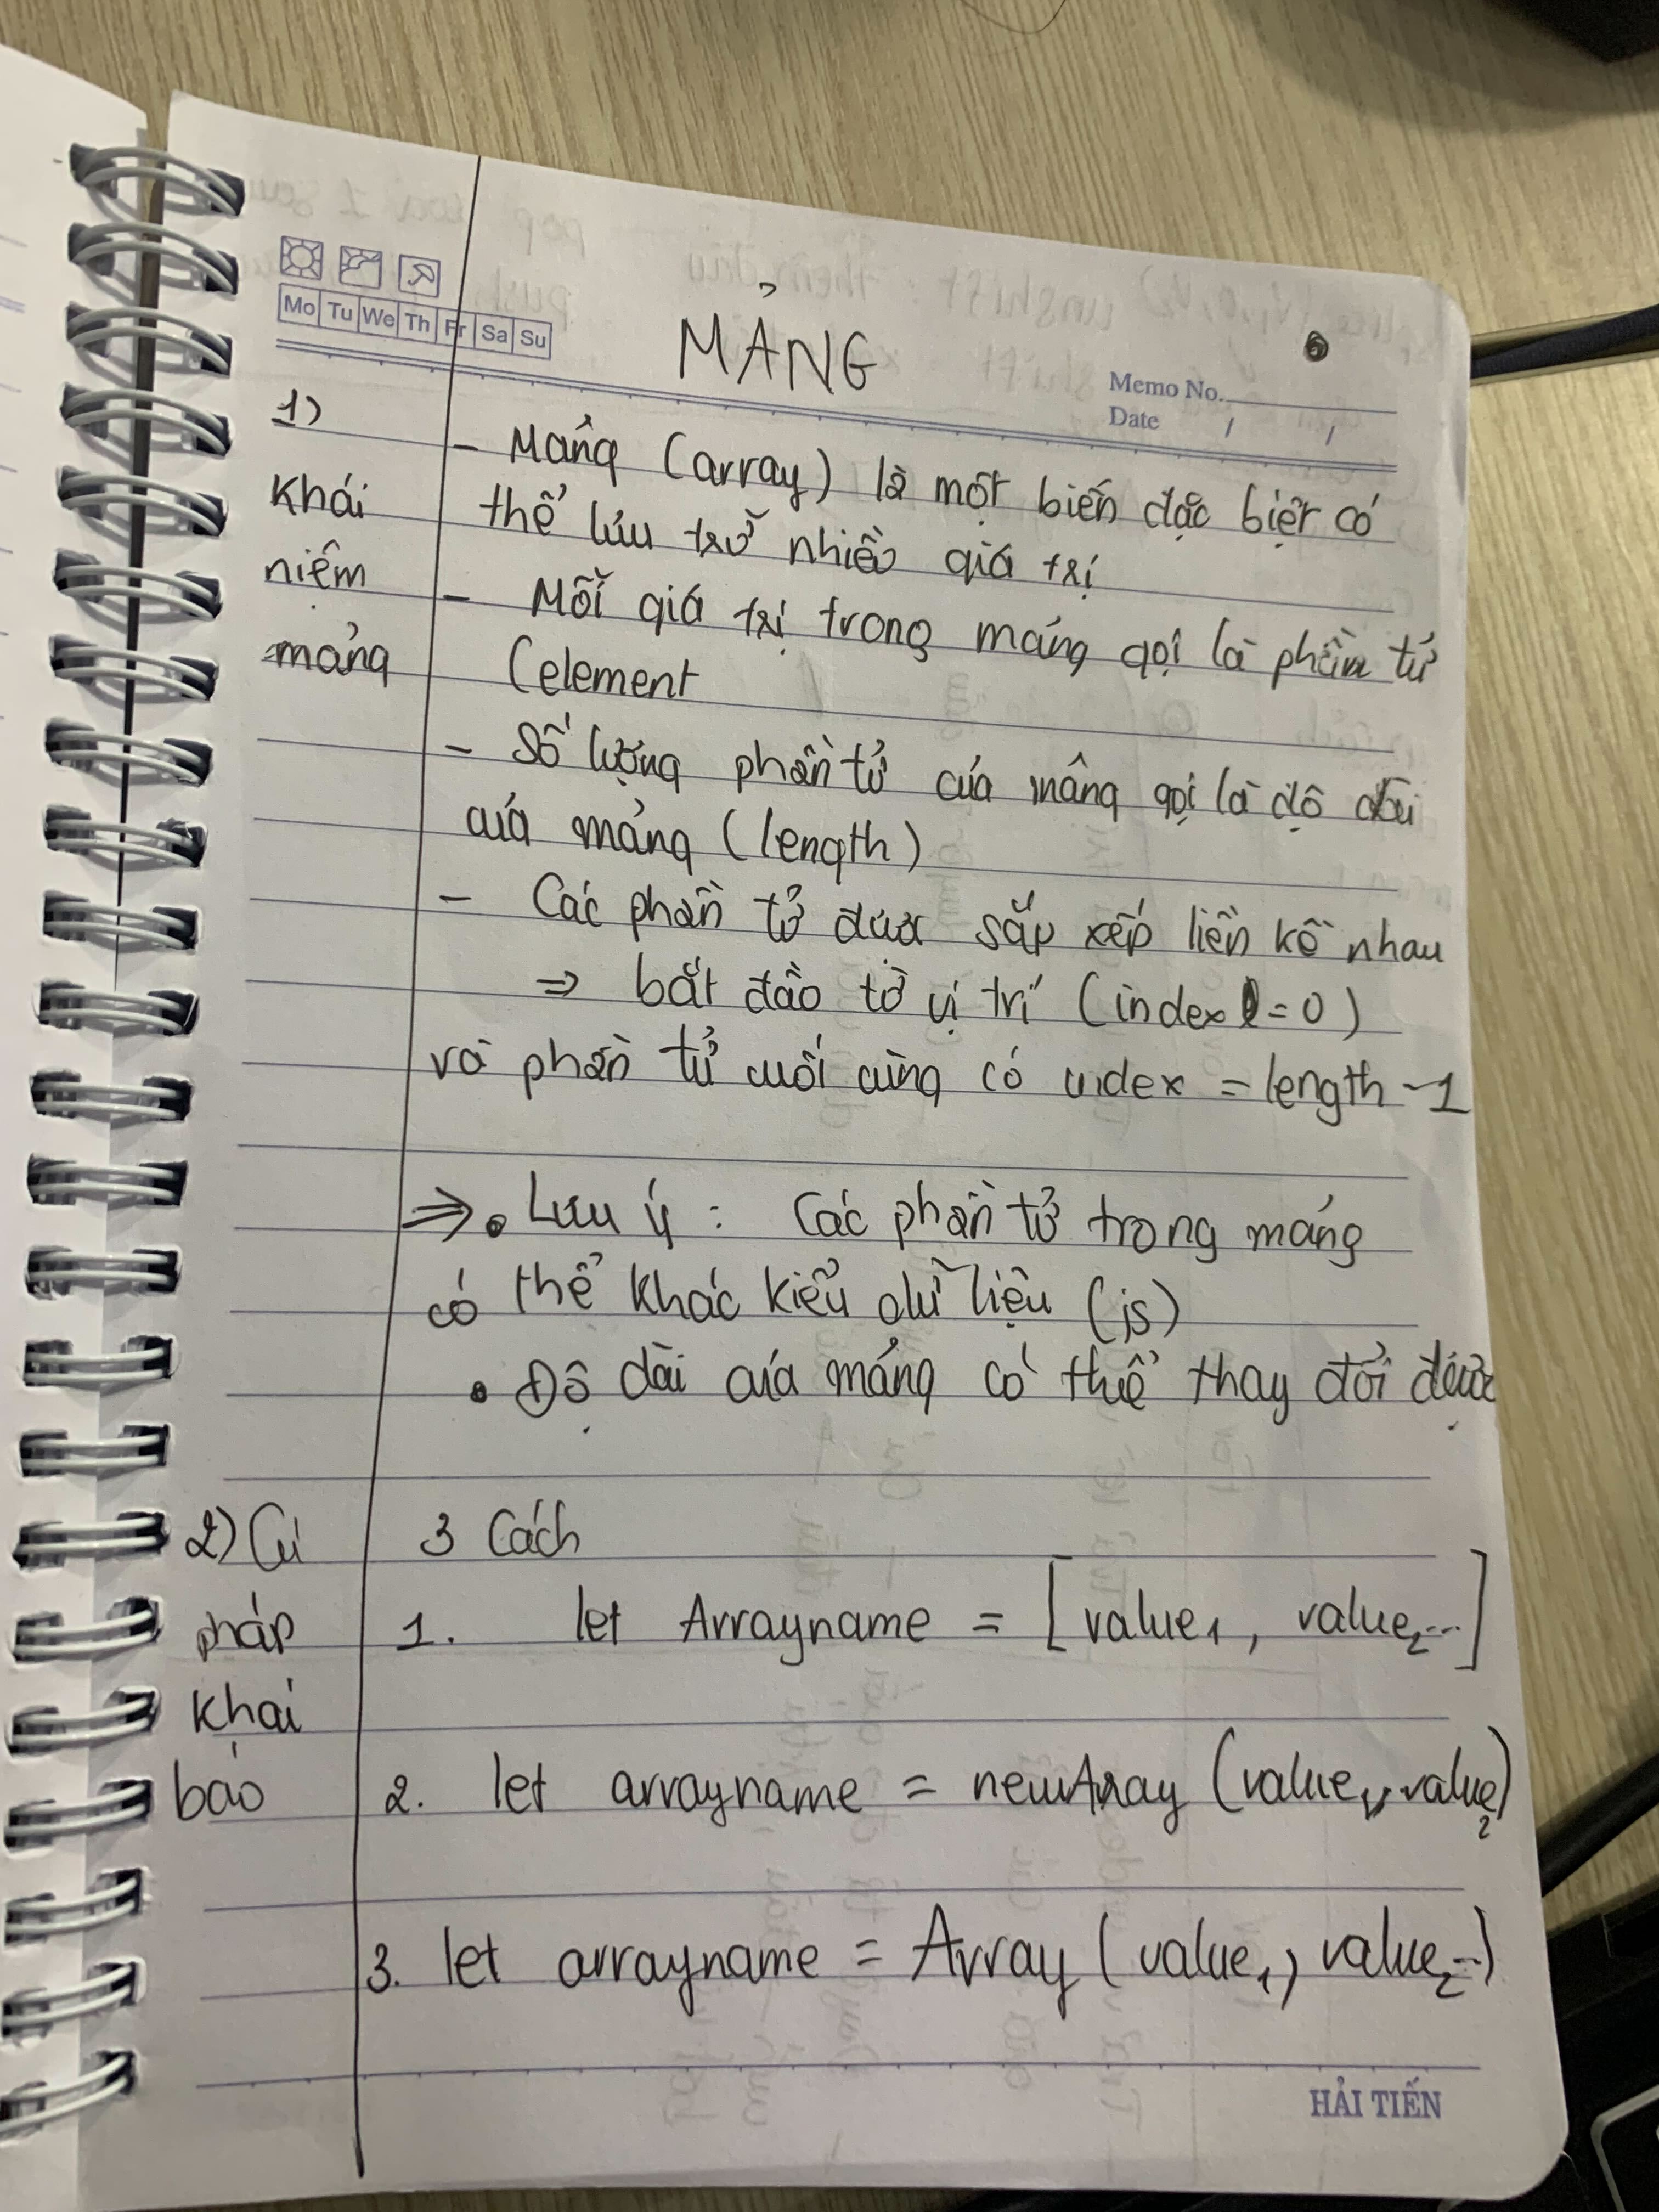 Mo Tu We Th Fr Sa Su
MẢNG
Memo No.
Date / /
1)
Khái
niệm
mảng
- Mảng (array) là một biến đặc biệt có
thể lưu trữ nhiều giá trị
- Mỗi giá trị trong mảng gọi là phần tử
(element
- Số lượng phần tử của mảng gọi là độ dài
của mảng (length)
- Các phần tử được sắp xếp liền kề nhau
⇒ bắt đầu từ vị trí (index = 0)
và phần tử cuối cùng có index = length - 1
⇒ • Lưu ý : Các phần tử trong mảng
có thể khác kiểu dữ liệu (js)
• Độ dài của mảng có thể thay đổi được
2) Cú
pháp
khai
báo
3 Cách
1. let Arrayname = [value1, value2...]
2. let arrayname = newArray (value1, value2)
3. let arrayname = Array (value1, value2...)
HẢI TIẾN